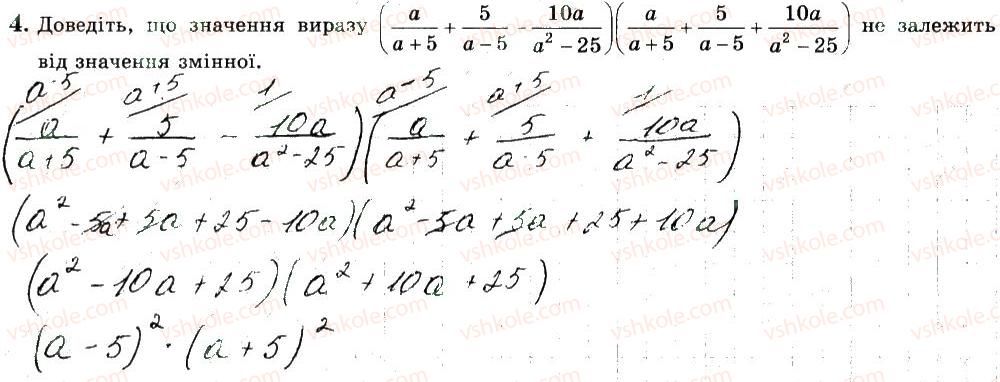 4. Доведіть, що значення виразу (a/(a+5) + 5/(a−5) − 10a/(a²−25))(a/(a+5) + 5/(a−5) + 10a/(a²−25)) не залежить
від значення змінної.
a-5 a+5 1 a-5 a+5 1
(a/(a+5) + 5/(a-5) - 10a/(a²-25))(a/(a+5) + 5/(a-5) + 10a/(a²-25))
(a² - 5a + 5a + 25 - 10a)(a² - 5a + 5a + 25 + 10a)
(a² - 10a + 25)(a² + 10a + 25)
(a - 5)² · (a + 5)²
vshkole.com